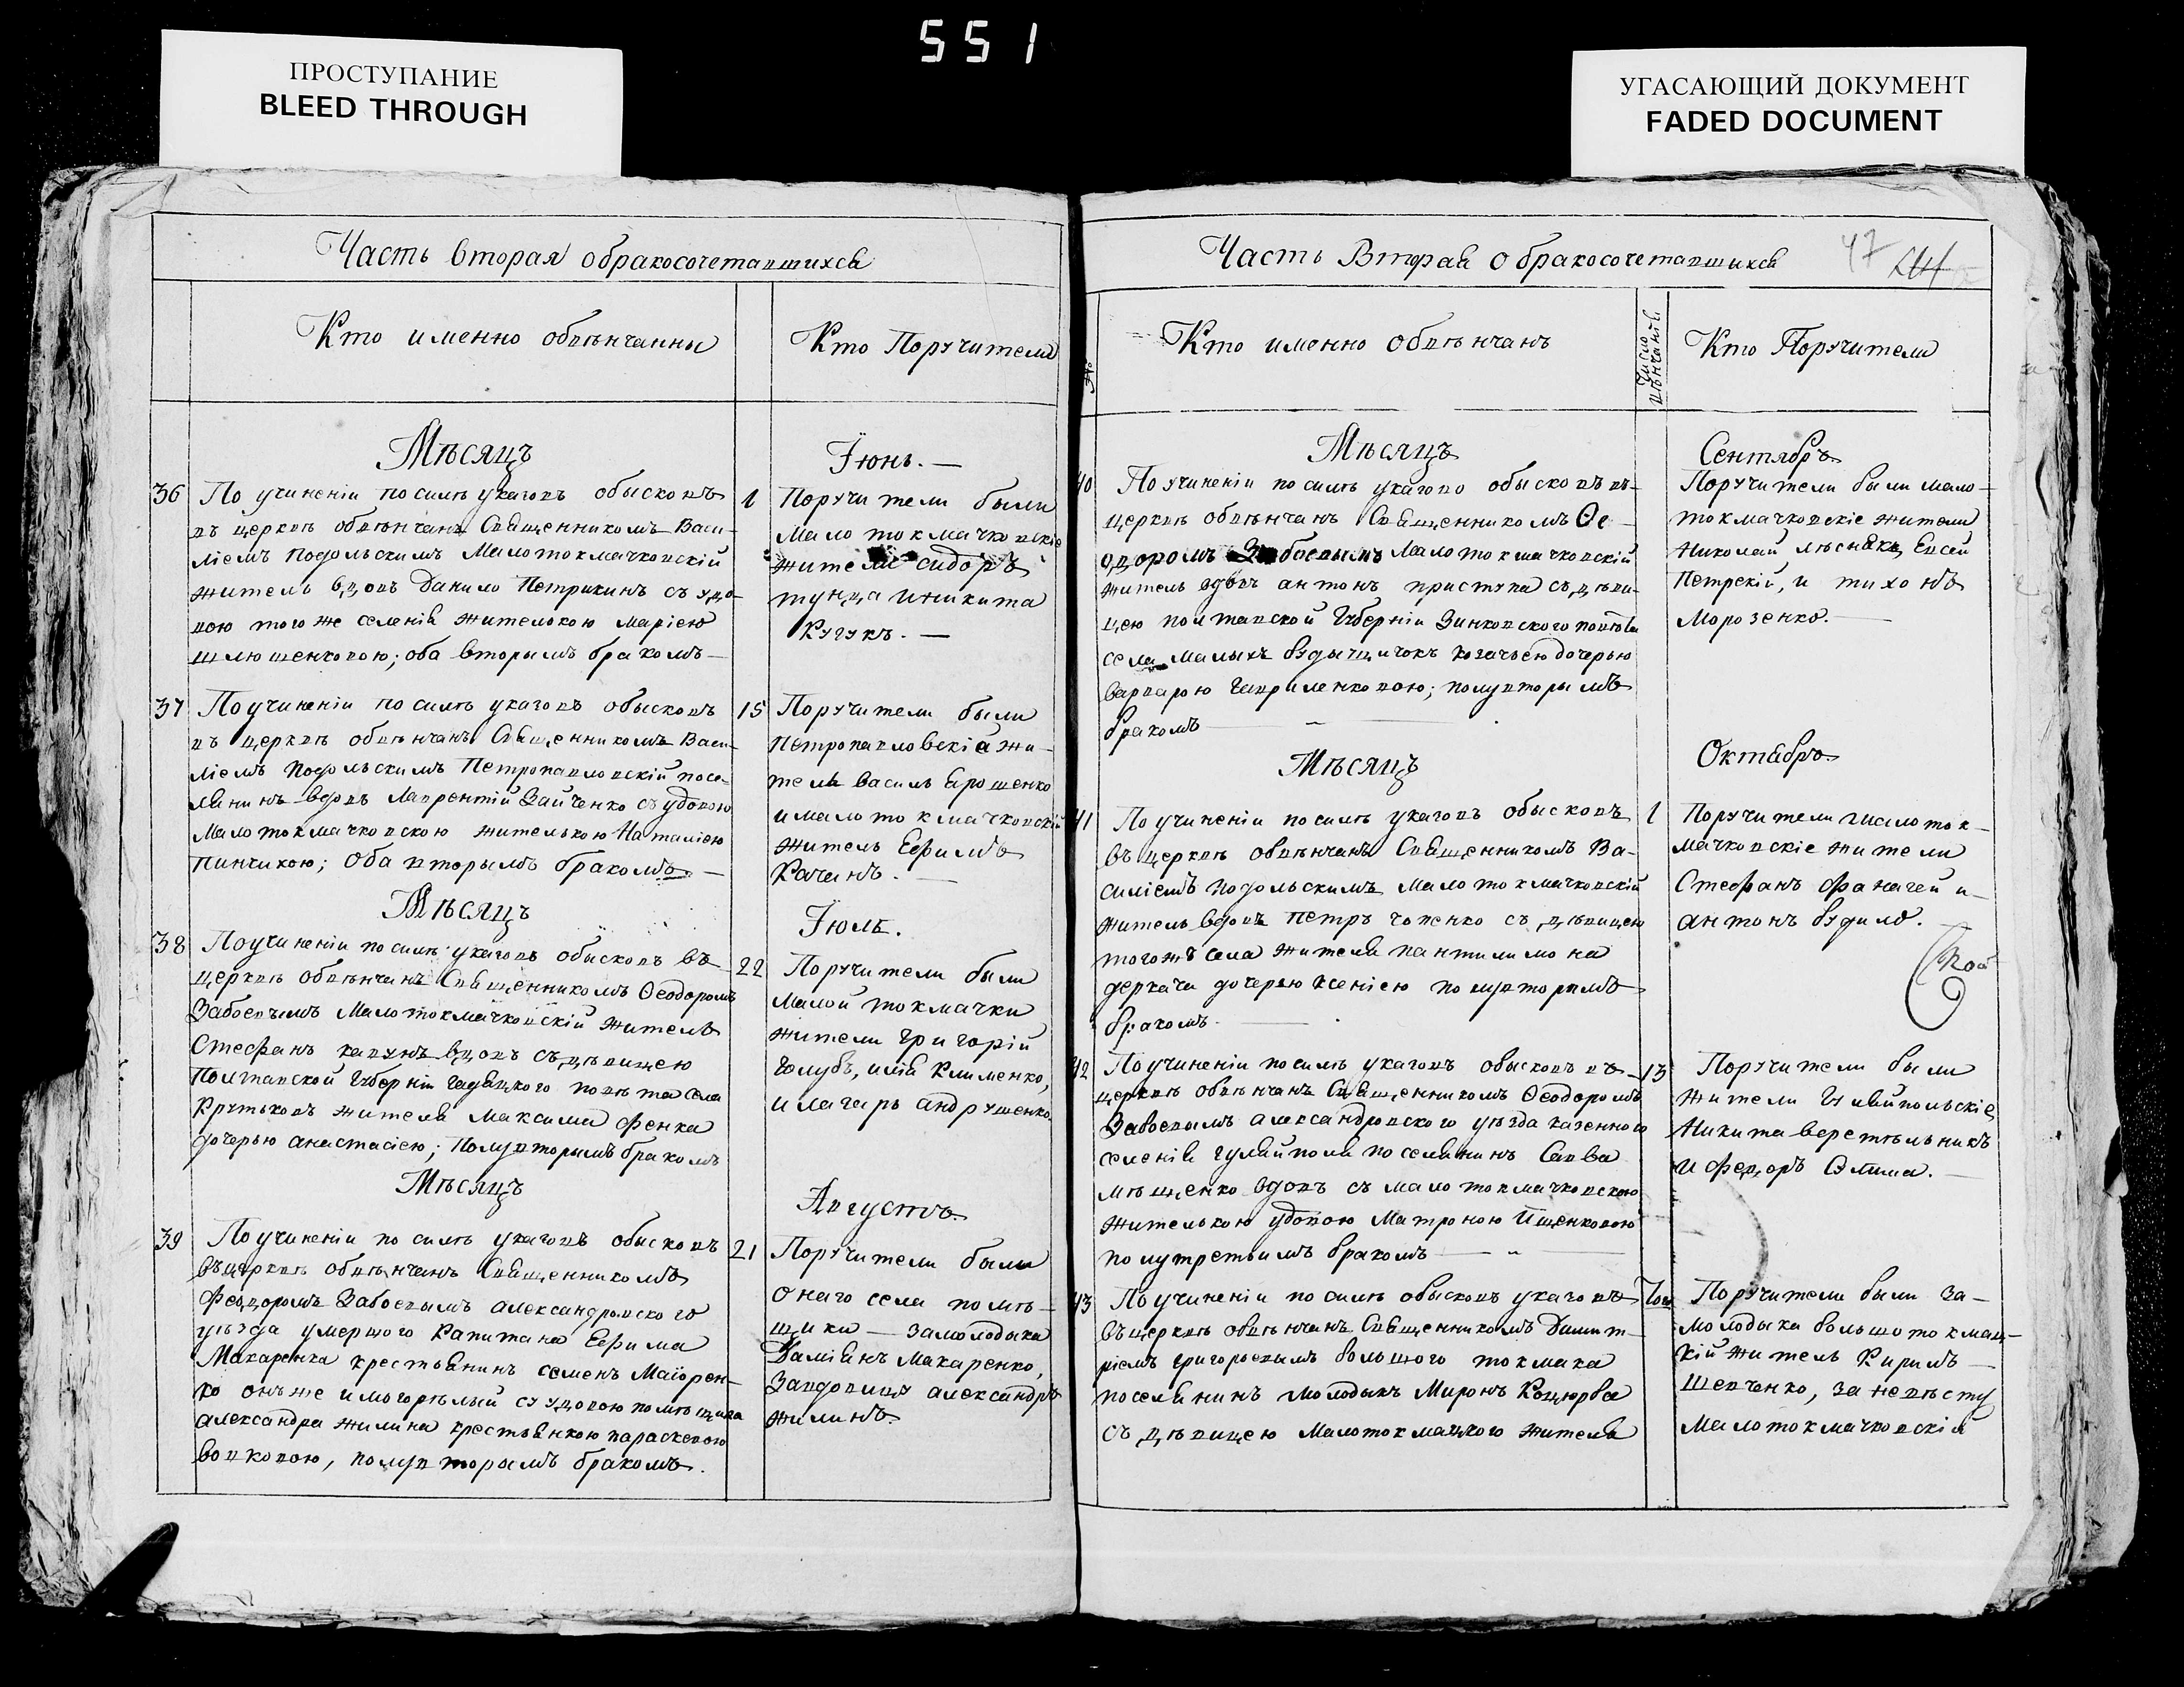 551
ПРОСТУПАНИЕ
BLEED THROUGH
УГАСАЮЩИЙ ДОКУМЕНТ
FADED DOCUMENT
Часть вторая о бракосочетавшихся
Кто именно обвѣнчанны
Кто Поручители
Мѣсяцъ
Іюнь. —
36
По учиненіи по силѣ указовъ обысковъ
въ церквѣ обвѣнчанъ Священникомъ Васи-
ліемъ Подольскимъ Малотокмачковскій
житель вдовъ Данило Петрикинъ съ удо-
вою того же селенія жителькою Маріею
Шлюшенковою; оба вторымъ бракомъ —
1
Поручители были
Малотокмачковскіе
жители сидоръ
тунда и никита
Кугукъ. —
37
По учиненіи по силѣ указовъ обысковъ
въ церквѣ обвѣнчанъ Священникомъ Васи-
ліемъ Подольскимъ Петропавловскій посе-
лянинъ вдовъ Лаврентій Зайченко съ удовою
Малотокмачковскою жителькою Наталіею
Пинчикою; Оба вторымъ бракомъ —
15
Поручители были
Петропавловскія жи-
тель василь Ерошенко
и малотокмачковскій
житель Ефимъ
Качанъ. —
Мѣсяцъ
Іюль.
38
По учиненіи по силѣ указовъ обысковъ въ
церквѣ обвѣнчанъ Священникомъ Ѳеодоромъ
Забоевымъ Малотокмачковскій житель
Стефанъ капунъ вдовъ съ дѣвицею
Полтавской Губерніи Гадяцкого повѣта села
Крутьковъ жителя Максима Фенка
дочерью анастасіею; Полувторымъ бракомъ
22
Поручители были
малой токмачки
жители григорій
голубъ, илія Клименко,
и лазарь андрушенко.
Мѣсяцъ
Августъ.
39
По учиненіи по силѣ указовъ обысковъ
въ церквѣ обвѣнчанъ Священникомъ
Феодоромъ Забоевымъ александровского
уѣзда умершого Капитана Ефима
Макаренка крестьянинъ семенъ Маіорен-
ко онъ же и могорѣлый съ удовою помѣщика
александра жилина крестьянкою параскевою
вовковою, полувторымъ бракомъ.
21
Поручители были
онаго села помѣ-
щики — за молодыка
Даміянъ Макаренко,
За вдовицу александръ
жилинъ.
Часть Вторая о бракосочетавшихся
47
№
Кто именно обвѣнчанъ
Число
вѣнчанiя
Кто Поручители
Мѣсяцъ
Сентябрь
40
По учиненіи по силѣ указово обысковъ въ-
церквѣ обвѣнчанъ Священникомъ Ѳе-
одоромъ Забоевымъ Малотокмачковскій
житель вдовъ антонъ приступа съ дѣви-
цею полтавской Губерніи Зинковского повѣта
села малыхъ будыщичокъ козачьею дочерью
варварою гавриленковою; полувторымъ
бракомъ —
Поручители были мало-
токмачковскіе жители
Николай лѣснякъ, Евсей
Петрскій, и тихонъ
Морозенко. —
Мѣсяцъ
Октябрь
41
По учиненіи по силѣ указовъ обысковъ
въ церквѣ обвѣнчанъ Священникомъ Ва-
силіемъ подольскимъ малотокмачковскій
житель вдовъ петръ чопенко съ дѣвицею
того жъ села жителя пантилимона
деркача дочерью ксеніею полувторымъ
бракомъ. —
1
Поручители малоток-
мачковскіе жители
Стефанъ фанагей и
антонъ будило.
42
По учиненіи по силѣ указовъ обысковъ въ-
церквѣ обвѣнчанъ Священникомъ Ѳеодоромъ
Забоевымъ александровского уѣзда казенного
селенія гуляйполя поселянинъ Савва
мѣщенко вдовъ съ малотокмачковскою
жителькою удовою Матроною Ищенковою
полутретьимъ бракомъ —
13
Поручители были
жители Гуляйпольскіе
Никита веретѣльникъ
и федоръ Олиша. —
43
По учиненіи по силѣ обысковъ указовъ
въ церквѣ обвѣнчанъ Священникомъ Димит-
ріемъ григорьевымъ большого токмака
поселянинъ молодыкъ Миронъ Коцюрба
съ дѣвицею Малотокмацкого жителя
Поручители были за-
молодыка большотокмац-
кій житель Кирилъ —
Шевченко, за невѣсту
малотокмачковскій